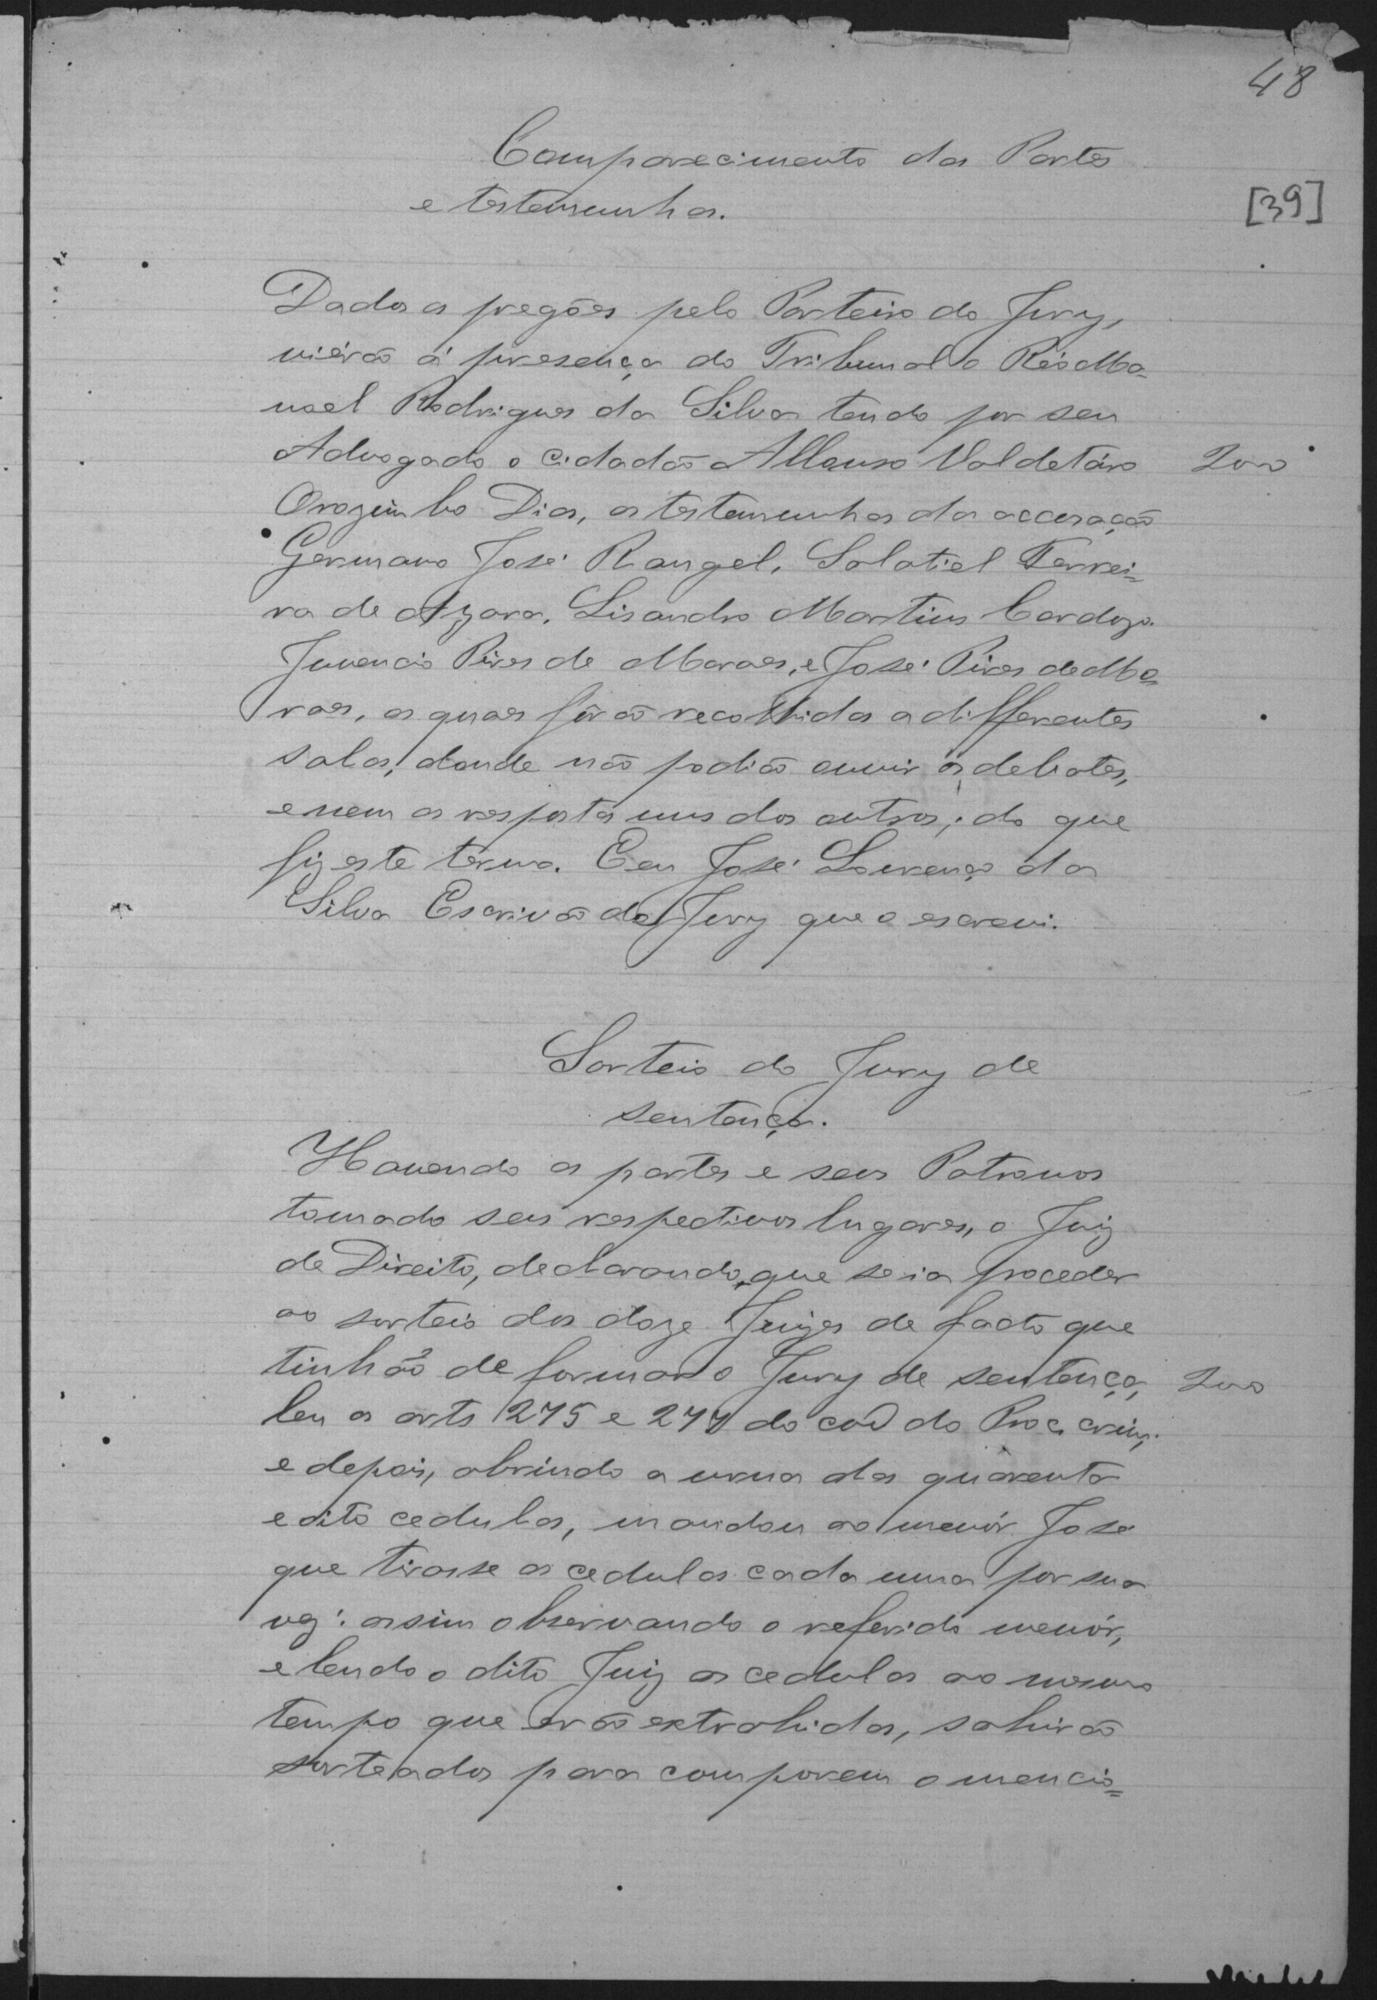 48
Comparecimento das Partes
e testemunhas.
[39]
Dados os pregões pelo Porteiro do Jury,
viérão á presença do Tribunal o Réo Ma-
noel Rodrigues da Silva tendo por seu
Advogado o cidadão Affonso Valdetáro 200
Orozimbo Dias, as testemunhas da accusação
Germano José Rangel, Salatiel Ferrei-
ra de Azara, Lisandro Martins Cardozo
Juvencio Pires de Moraes, e José Pires de Mo-
raes, as quaes fôrão recolhidas a differentes
salas, donde não podião ouvir os debates,
e nem as respostas uns dos outros; do que
fiz este termo. Eeu José Lourenço da
Silva Escrivão do Jury que o escrevi.
Sorteio do Jury de
sentença.
Havendo as partes e seus Patronos
tomado seus respectivos lugares, o Juiz
de Direito, declarando, que se ia proceder
ao sorteio dos doze Juizes de facto que
tinhão de formar o Jury de sentença, 200
leu os arts 275 e 277 do cod do Proc. crim.
e depois, abrindo a urna das quarenta
e oito cedulas, mandou ao menór José
que tirasse as cedulas cada uma por sua
vez: assim observando o referido menór,
e lendo o dito Juiz as cedulas ao mesmo
tempo que erão extrahidas, sahirão
sorteados para comporem o mencio-